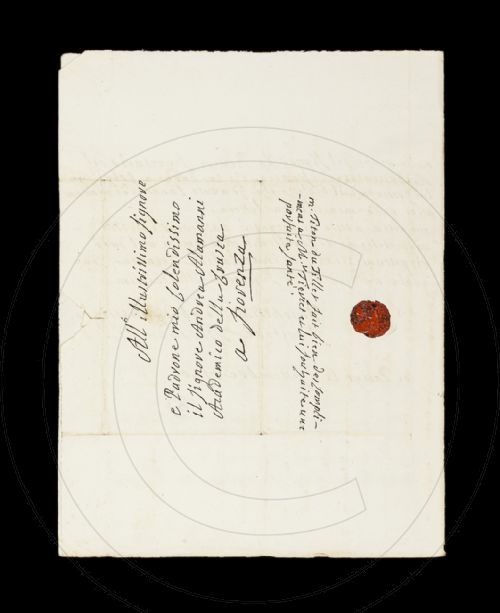 All' illustrissimo signore
e Padrone mio Colendissimo
il signore Andrea Alamanni
Academico della Crusca
a fiorenza
m. Titon du Tillet fait bien des Compli-
-mens a M.r et lui souhaite une
parfaite santé.